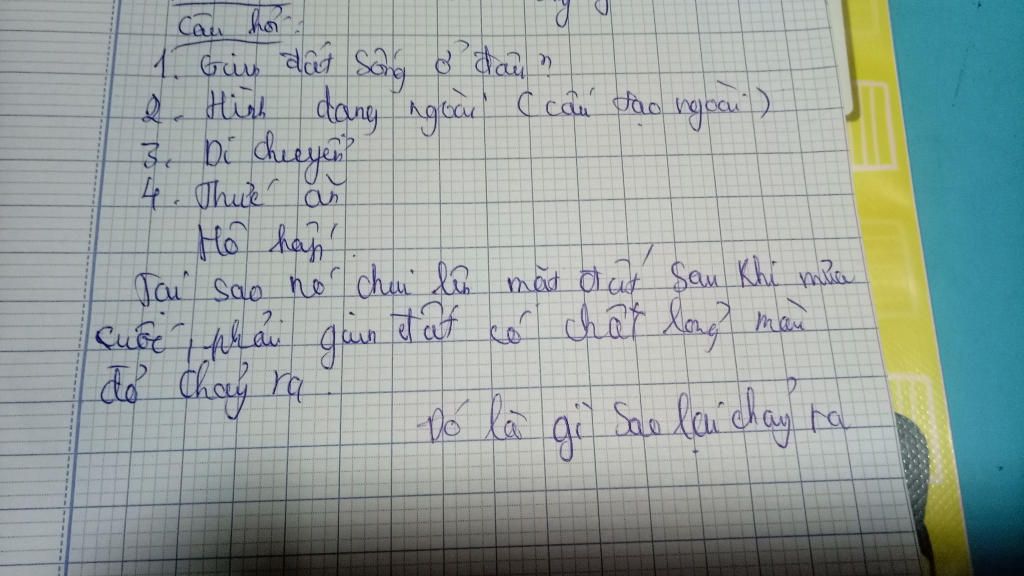 Câu hỏi:
1. Giun đất sống ở đâu?
2. Hình dạng ngoài (cấu tạo ngoài)
3. Di chuyển?
4. Thức ăn
Hô hấp
Tại sao nó chui lên mặt đất sau khi mưa
cuốc, phải giun đất có chất lỏng màu
đỏ chảy ra
Đó là gì sao lại chảy ra